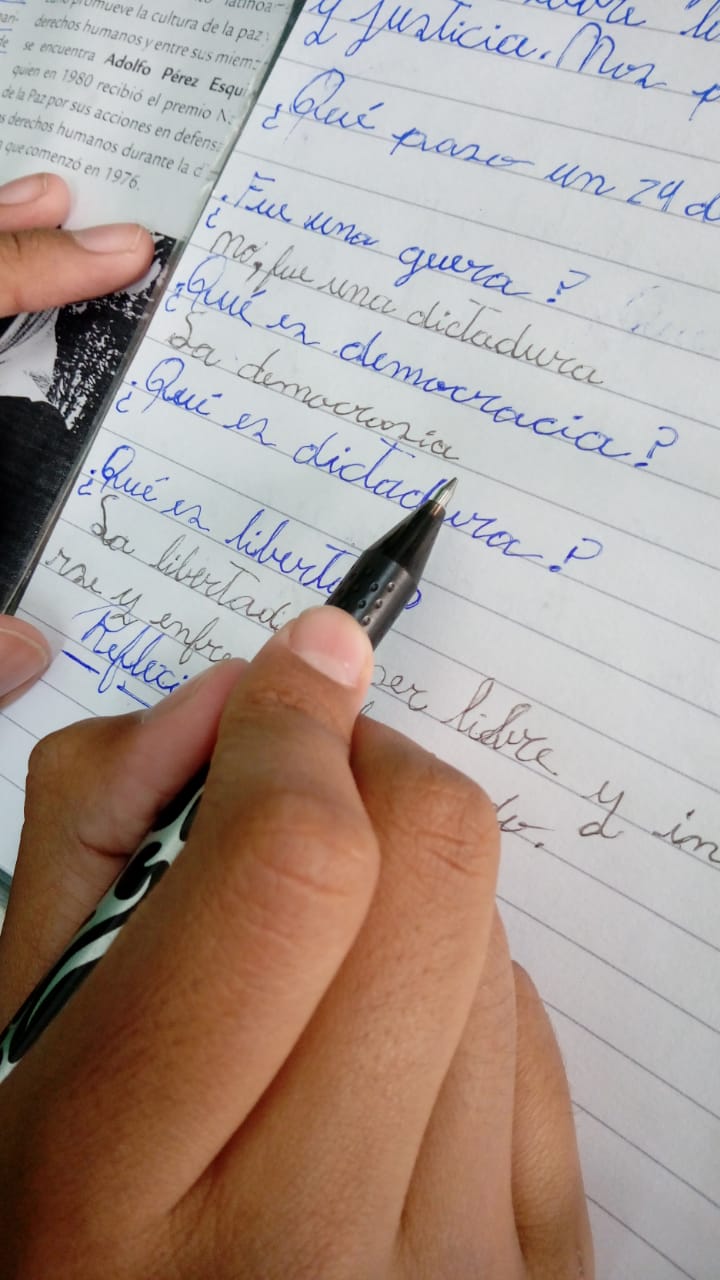 promueve la cultura de la paz
derechos humanos y entre sus miem-
se encuentra Adolfo Pérez Esqui
quien en 1980 recibió el premio N
de la Paz por sus acciones en defens
s derechos humanos durante la d
que comenzó en 1976.
y justicia. Nos p
¿Qué paso un 24 d
¿Fue una guera?
no, fue una dictadura
¿Qué es democracia?
La democrasia
¿Qué es dictadura?
¿Qué es liberta
La libertad ser libre y in
rse y enfre do. a
Reflexi